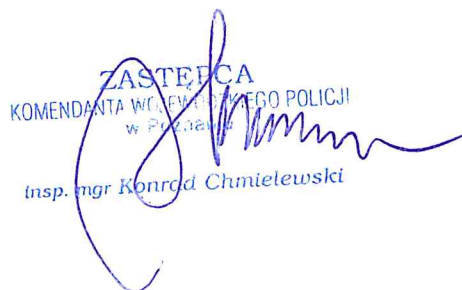 ZASTĘPCA
KOMENDANTA WOJEWÓDZKIEGO POLICJI
w Poznaniu
insp. mgr Konrad Chmielewski